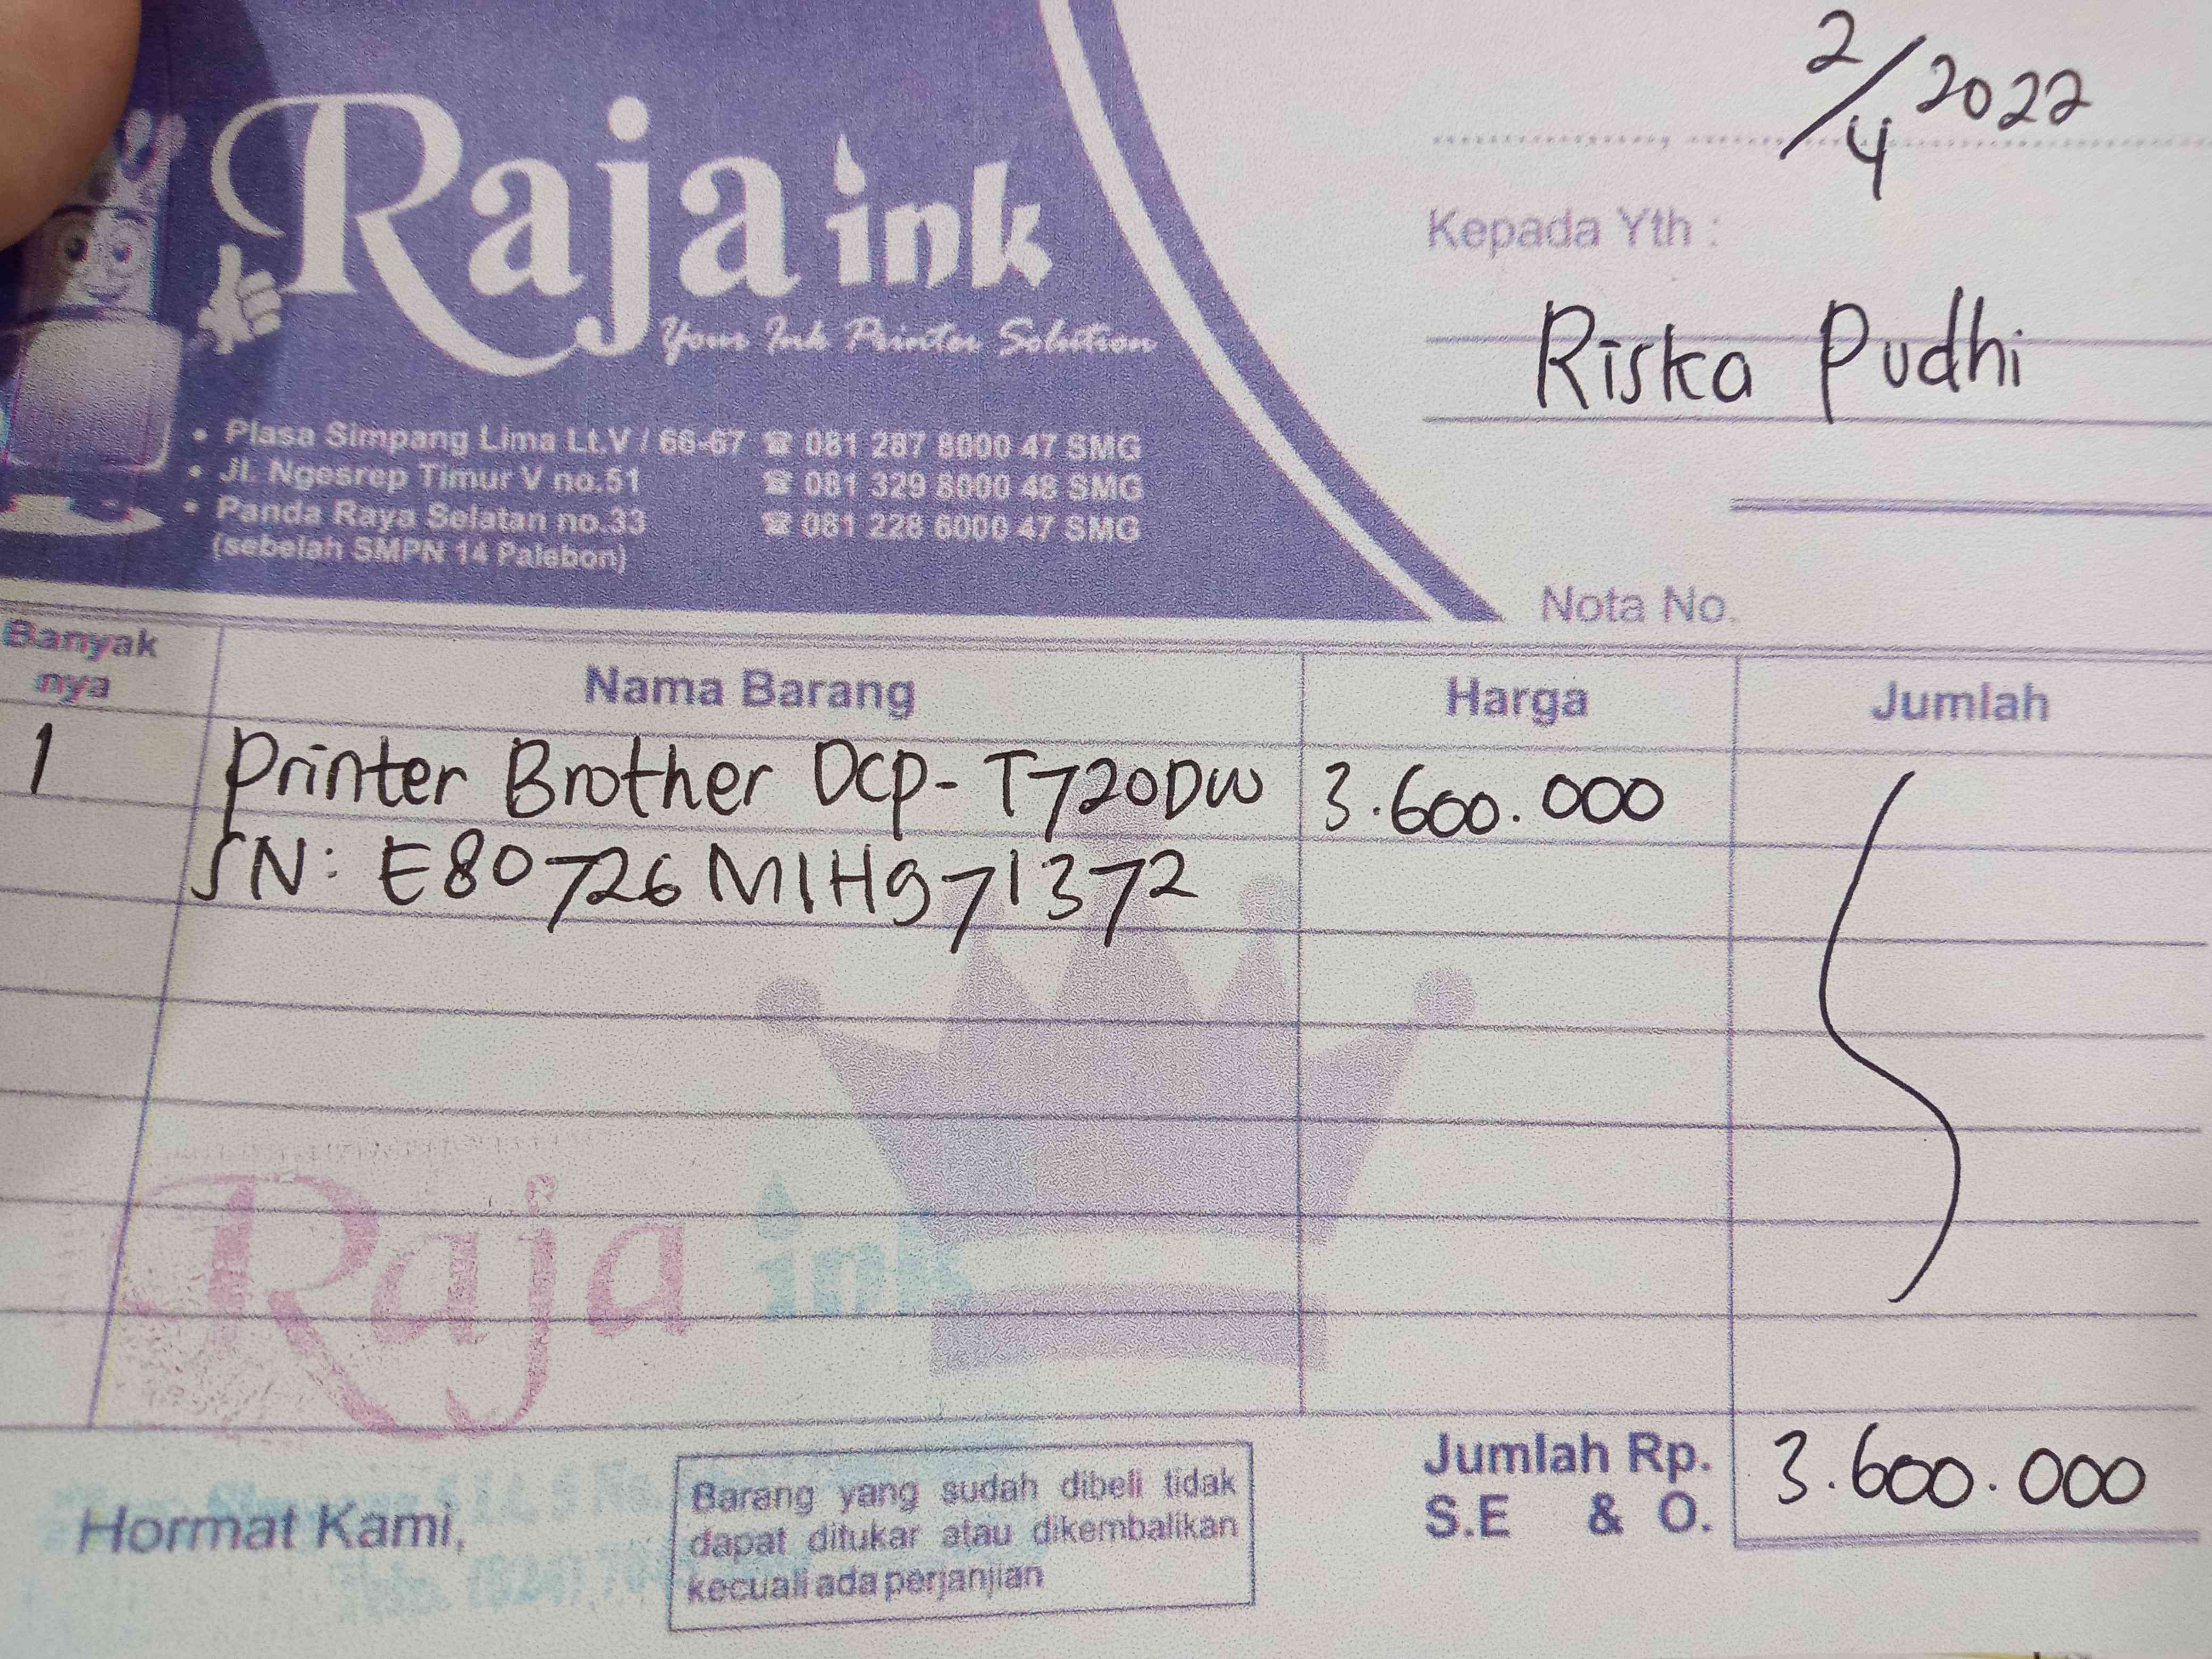 2/4 2022
Raja ink
Your Ink Printer Solution
• Plasa Simpang Lima Lt.V / 66-67 ☎ 081 287 8000 47 SMG
• Jl. Ngesrep Timur V no.51 ☎ 081 329 8000 48 SMG
• Panda Raya Selatan no.33 ☎ 081 228 6000 47 SMG
(sebelah SMPN 14 Palebon)
Kepada Yth :
Riska Pudhi
Nota No.
Banyak nya Nama Barang Harga Jumlah
1 Printer Brother Dcp-T720DW 3.600.000
SN: E80726M1H971372
Raja ink
Jumlah Rp. 3.600.000
S.E & O.
Hormat Kami,
Barang yang sudah dibeli tidak
dapat ditukar atau dikembalikan
kecuali ada perjanjian